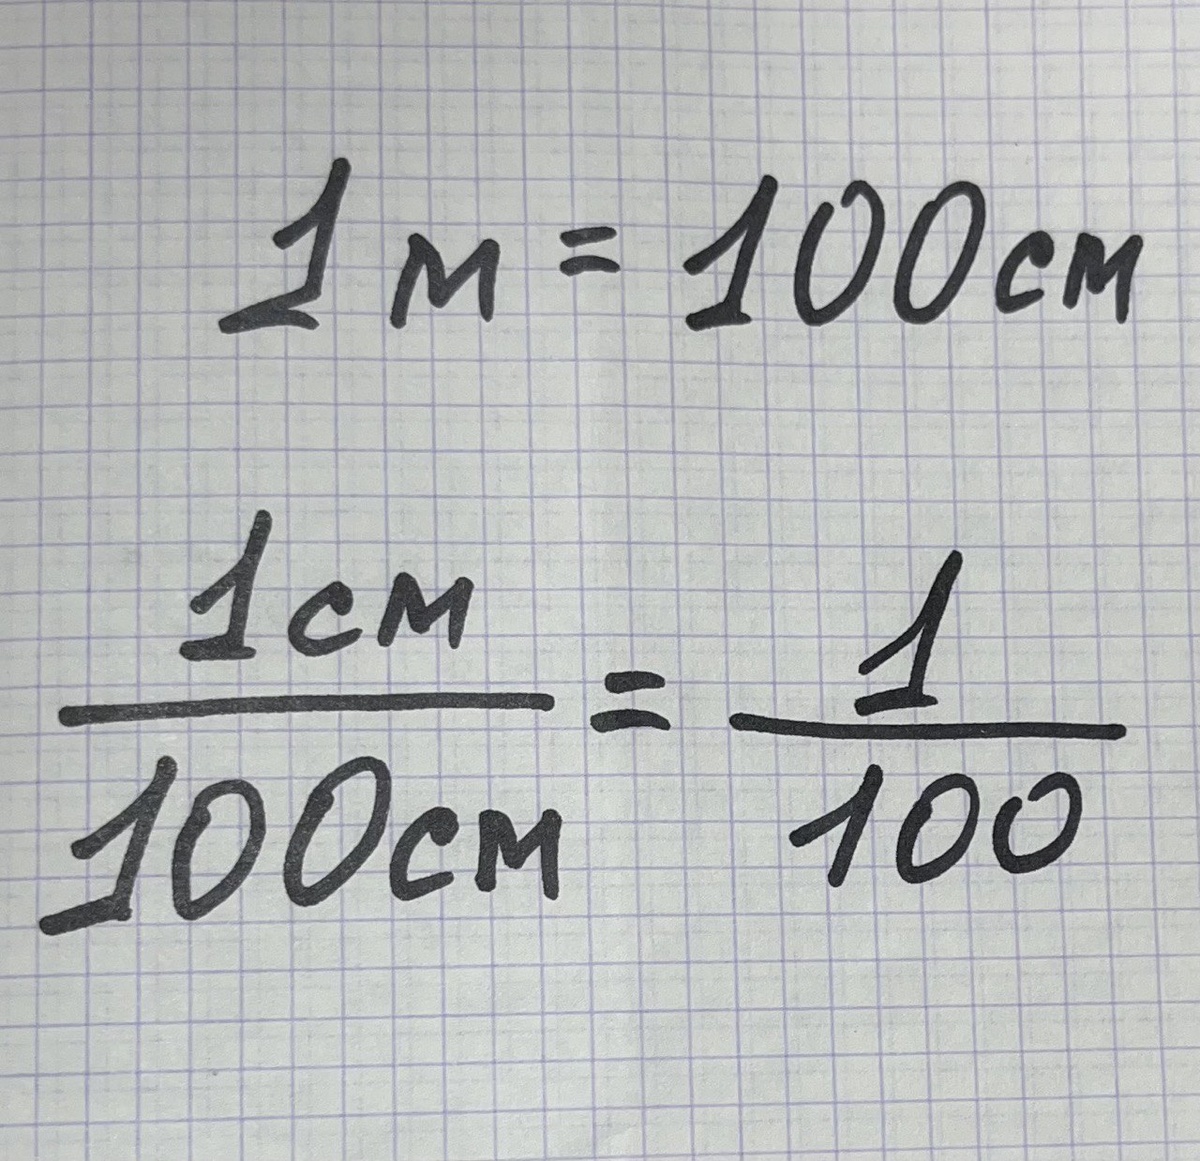 1 м = 100см
1см/100см = 1/100